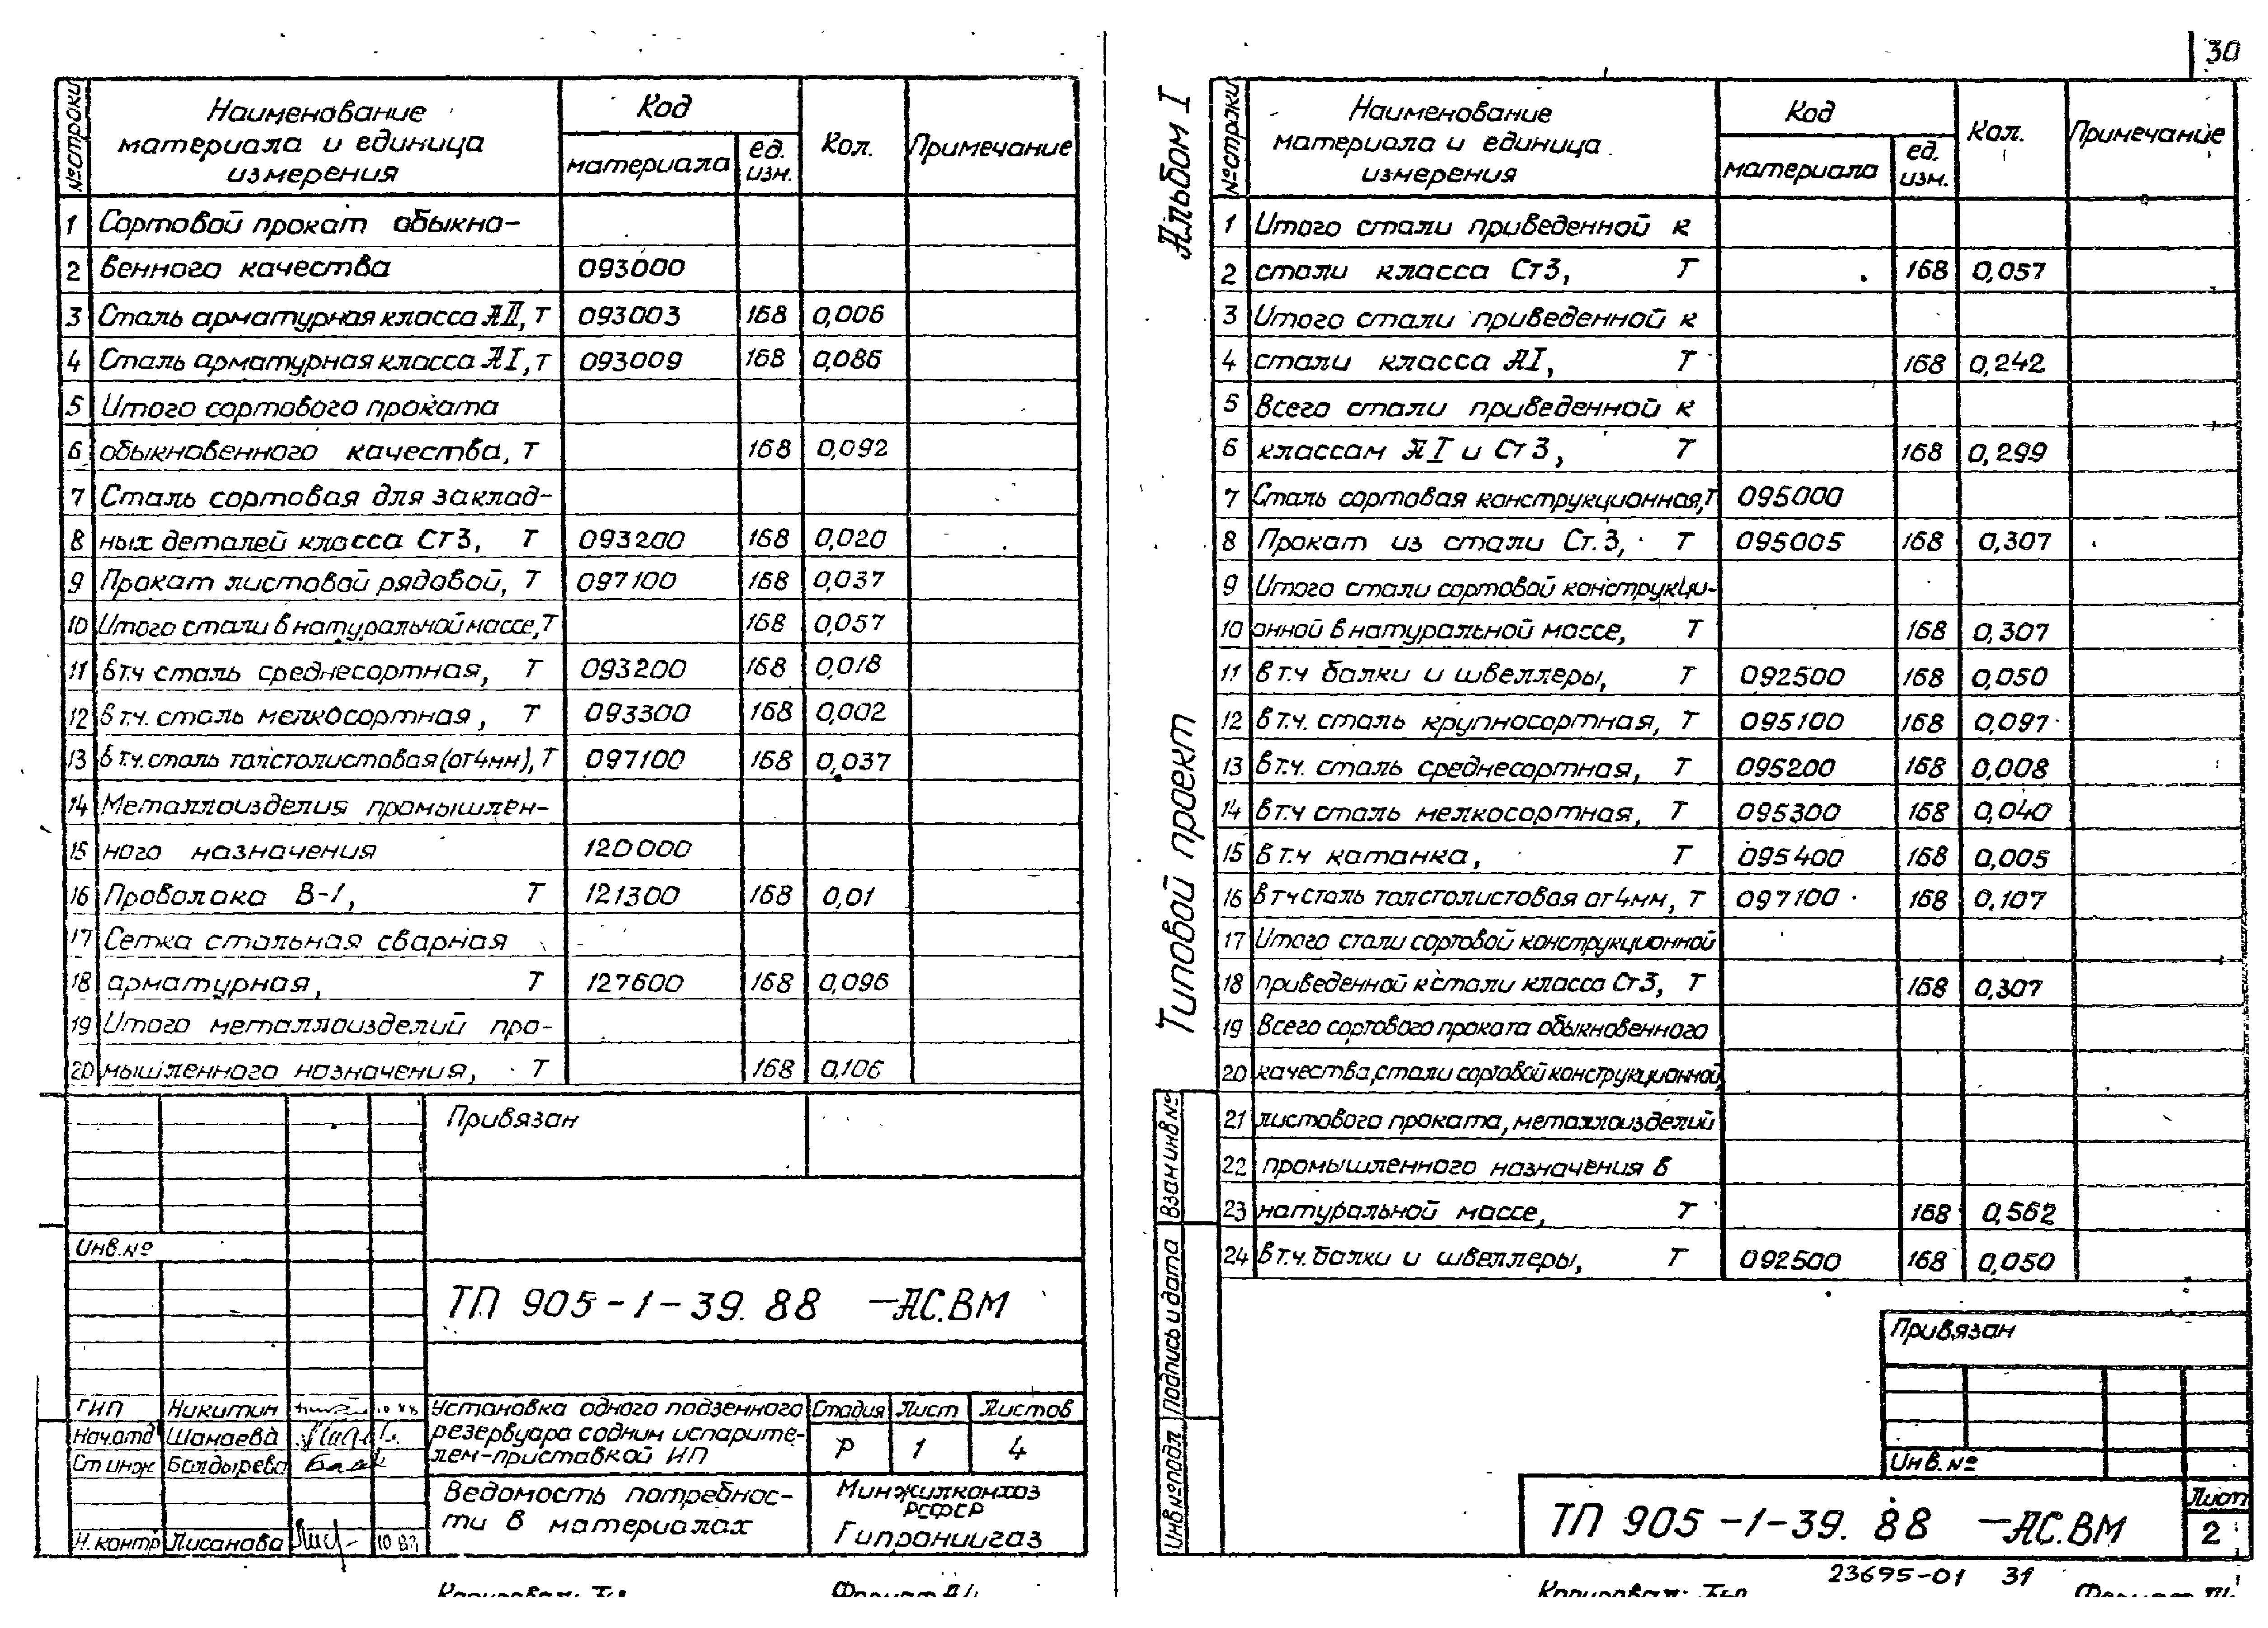 № строки
Наименование материала и единица измерения
Код
материала
ед. изм.
Кол.
Примечание
1 Сортовой прокат обыкно-
2 венного качества 093000
3 Сталь арматурная класса АII, т 093003 168 0,006
4 Сталь арматурная класса АI, т 093009 168 0,086
5 Итого сортового проката
6 обыкновенного качества, т 168 0,092
7 Сталь сортовая для заклад-
8 ных деталей класса Ст3, т 093200 168 0,020
9 Прокат листовой рядовой, т 097100 168 0,037
10 Итого стали в натуральной массе, т 168 0,057
11 в т.ч сталь среднесортная, т 093200 168 0,018
12 в т.ч. сталь мелкосортная, т 093300 168 0,002
13 в т.ч. сталь толстолистовая (от 4мм), т 097100 168 0,037
14 Металлоизделия промышлен-
15 ного назначения 120000
16 Проволока В-1, т 121300 168 0,01
17 Сетка стальная сварная
18 арматурная, т 127600 168 0,096
19 Итого металлоизделий про-
20 мышленного назначения, т 168 0,106
Привязан
Инв. №
ТП 905-1-39.88 -АС.ВМ
ГИП Никитин 10 88
Нач.отд Шанаева
Ст инж Болдырева
Н. контр Лисанова 10 87
Установка одного подземного
резервуара с одним испарите-
лем-приставкой ИП
Стадия Лист Листов
Р 1 4
Ведомость потребнос-
ти в материалах
Минжилкомхоз
РСФСР
Гипрониигаз
30
Альбом I
Типовой проект
№ строки
Наименование материала и единица измерения
Код
материала
ед. изм.
Кол.
Примечание
1 Итого стали приведенной к
2 стали класса Ст3, т 168 0,057
3 Итого стали приведенной к
4 стали класса АI, т 168 0,242
5 Всего стали приведенной к
6 классам АI и Ст3, т 168 0,299
7 Сталь сортовая конструкционная, т 095000
8 Прокат из стали Ст.3, т 095005 168 0,307
9 Итого стали сортовой конструкци-
10 онной в натуральной массе, т 168 0,307
11 в т.ч балки и швеллеры, т 092500 168 0,050
12 в т.ч. сталь крупносортная, т 095100 168 0,097
13 в т.ч. сталь среднесортная, т 095200 168 0,008
14 в т.ч сталь мелкосортная, т 095300 168 0,040
15 в т.ч катанка, т 095400 168 0,005
16 в т.ч сталь толстолистовая от 4мм, т 097100 168 0,107
17 Итого стали сортовой конструкционной
18 приведенной к стали класса Ст3, т 168 0,307
19 Всего сортового проката обыкновенного
20 качества, стали сортовой конструкционной,
21 листового проката, металлоизделий
22 промышленного назначения в
23 натуральной массе, т 168 0,562
24 в т.ч. балки и швеллеры, т 092500 168 0,050
Взам инв №
Подпись и дата
Инв.№ подл
Привязан
Инв. №
ТП 905-1-39.88 -АС.ВМ
Лист
2
23695-01 31